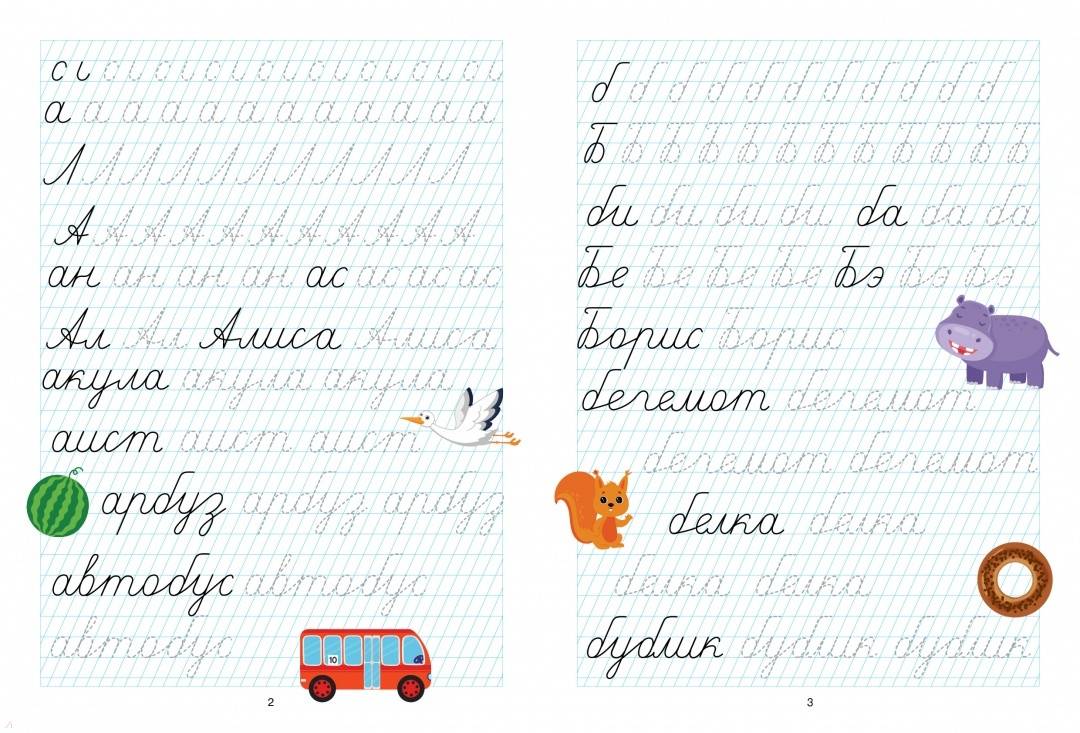 с ι сι сι сι сι сι сι сι сι
а а а а а а а а а а а а
Л Л Л Л Л Л Л Л Л Л Л
А А А А А А А А А А А
ан ан ан ан ас ас ас ас
Ал Ал Алиса Алиса
акула акула акула
аист аист аист
арбуз арбуз арбуз
автобус автобус
автобус
10
2
б б б б б б б б б б б
Б Б Б Б Б Б Б Б Б Б Б Б
би би би би ба ба ба
Бе Бе Бе Бе Бэ Бэ Бэ
Борис Борис
бегемот бегемот
бегемот бегемот
белка белка
белка белка
бублик бублик бублик
3